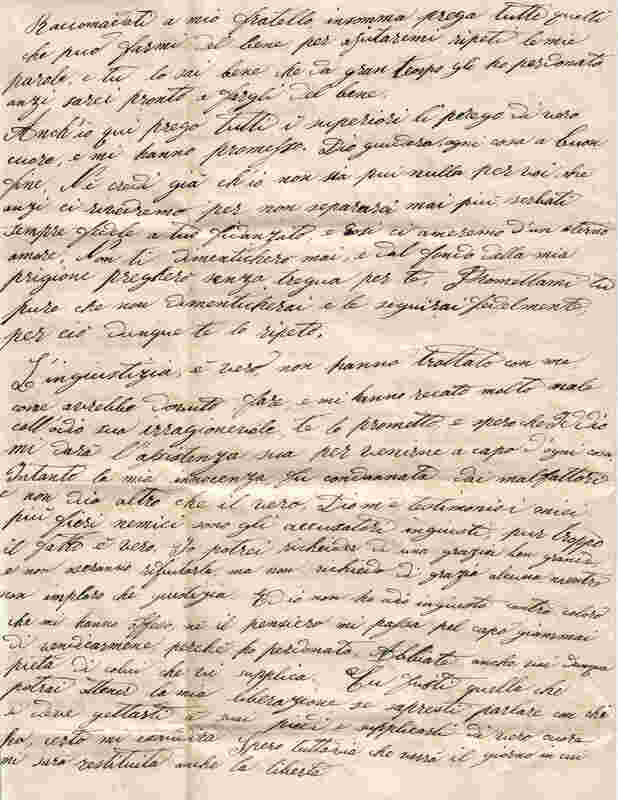 Raccomandati a mio fratello insomma prega tutti quelli
che può farmi del bene per ajutarmi ripeti le mie
parole, e tu lo sai bene che da gran tempo gli ho perdonato
anzi sarei pronto a fargli del bene.
Anch'io qui prego tutti i superiori li prego di vero
cuore, e mi hanno promesso. Dio guiderà ogni cosa a buon
fine. Nè credi già ch'io non sia più nulla per voi, che
anzi ci rivedremo per non separarci mai più, serbati
sempre fedele a tuo fidanzato, e così ci ameremo d'un eterno
amore. Non ti dimenticherò mai, e dal fondo della mia
prigione pregherò senza tregua per te. Promettami tu
pure che non dimenticherai e le seguirai fedelmente,
per ciò dunque te lo ripeto.
L'ingiustizia, è vero non hanno trattato con me
come avrebbe dovuto fare, e mi hanno recato molto male
coll'odio suo irragionevole, te lo prometto, e spero che Iddio
mi darà l'assistenza sua per venirne a capo d'ogni cosa
Intanto la mia innocenza fu condannata dai malfattori
e non dico altro che il vero. Dio m'è testimonio i miei
più fieri nemici sono gli accusatori ingiusti, pur troppo
il fatto è vero. Io potrei richieder di una grazia ben grande
e non verranno rifiutarla ma non richiedo di grazia alcuna mentre
non imploro che giustizia. Ed io non ho odio ingiusto contro coloro
che mi hanno offeso, nè il pensiero mi passa pel capo giammai
di vendicarmene perchè ho perdonato. Abbiate anche voi dunque
pietà di colui che vi supplica. Tu fosti quella che
potrai ottener la mia liberazione se sapresti parlare con chi
si deve gettarti a suoi piedi e supplicarli di vero cuore
Spero tuttavia che verrà il giorno in cui
mi sarà restituita anche la libertà